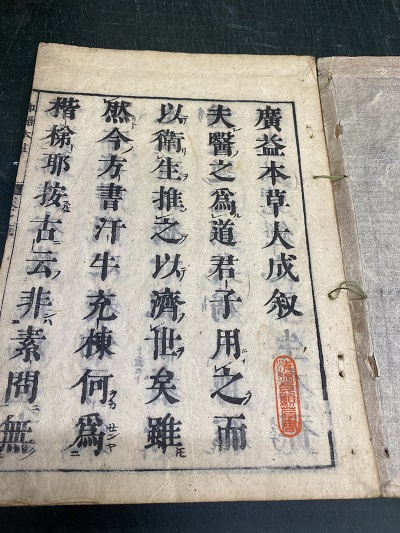 廣益本草大成叙
夫醫之爲道君子用之而
以衛生推之以濟世矣雖
然今方書汗牛充棟何爲
楷梯耶按古云非素問無